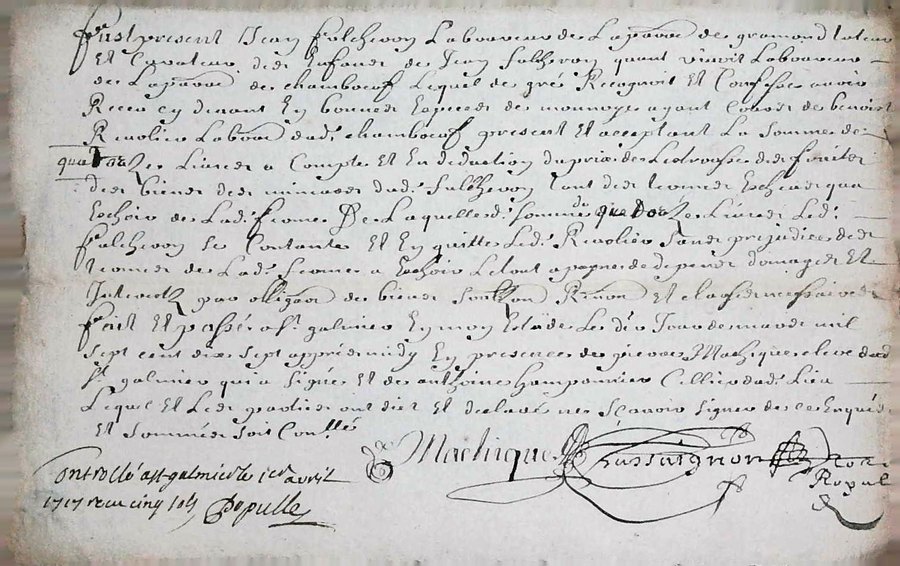 Fust present Jean Folchevon Laboureur de La parre de gramond tuteur
Et Curateur des Enfants de Jean Sulheron quant vivoit Laboureur
de La parre de chambœuf Lequel de gré Recognoit Et Confesse avoir
Receu cy devant En bonnes Especes de monnoye ayant Cours de benoist
Rivolier Labour dud. chambœuf present Et acceptant La somme de
quatorze Livres a Compte Et En deduction du prix de Lestrousse des fruits
des biens des mineurs dud. Sulheron tant des termes Escheus qua
Eschoir de Lad. ferme De Laquelle d. somme de quatorze Livres Led.
Folchevon se Contante Et En quitte Led. Rivolier sans prejudice des
termes de Lad. ferme a Eschoir Le tout a peyne de depens domages Et
Interestz par obligaon de biens Renon Et clauses necessaires
fait Et passé a St. galmier En mon Estude Le dix Jour de mars mil
sept cent dix sept apprés midy En presence de Machique clerc dud
St. galmier qui a signé Et de anthoine Cellier dud. Lieu
Lequel Et Les parties ont dict Et declaré ne scavoir signer de ce Enquis
Et sommés soit Conllé
Machique
Jussaignon
No.re Royal
Controllé a st galmier le 1er avril
1717 receu cinq sols Depulle